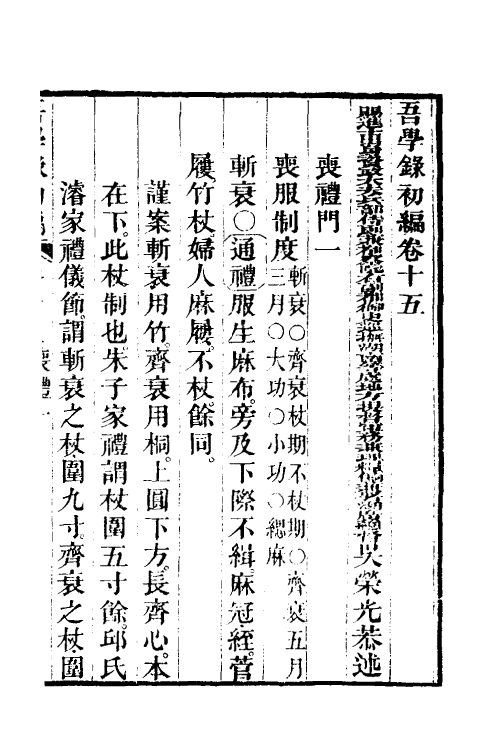 吾學錄初編卷十五
吳榮光恭述
喪禮門一
喪服制度斬衰○齊衰杖期不杖期○齊衰五月
三月○大功○小功○緦麻
斬衰○通禮服生麻布旁及下際不緝麻冠絰菅
屨竹杖婦人麻屨不杖餘同
謹案斬衰用竹齊衰用桐上圓下方長齊心本
在下此杖制也朱子家禮謂杖圍五寸餘邱氏
濬家禮儀節謂斬衰之杖圍九寸齊衰之杖圍